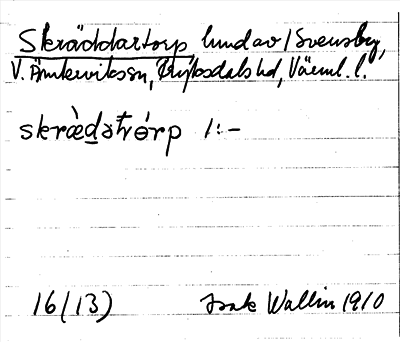 Skräddartorp, lund av / Svensby,
V. Ämterviks sn, Fryksdals hd, Värml. l.
skrædatorp 1:-
16 (13) Isak Wallin 1910